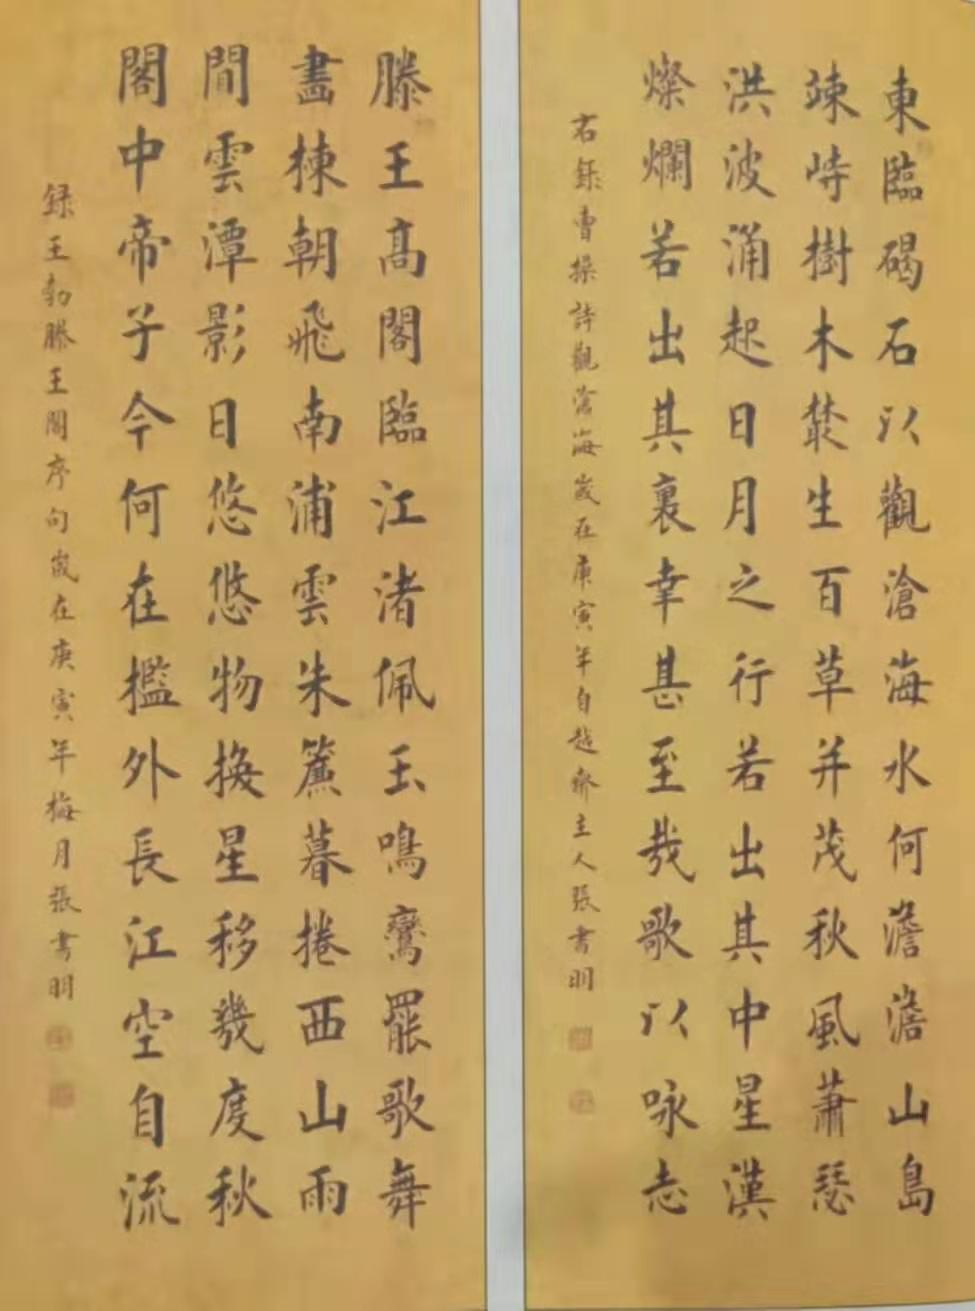 東臨碣石以觀滄海水何澹澹山島
竦峙樹木叢生百草并茂秋風蕭瑟
洪波涌起日月之行若出其中星漢
燦爛若出其裏幸甚至哉歌以咏志
右錄曹操詩觀滄海歲在庚寅年自越齋主人張書明
滕王高閣臨江渚佩玉鳴鸞罷歌舞
畫棟朝飛南浦雲朱簾暮捲西山雨
閒雲潭影日悠悠物換星移幾度秋
閣中帝子今何在檻外長江空自流
錄王勃滕王閣序句歲在庚寅年梅月張書明